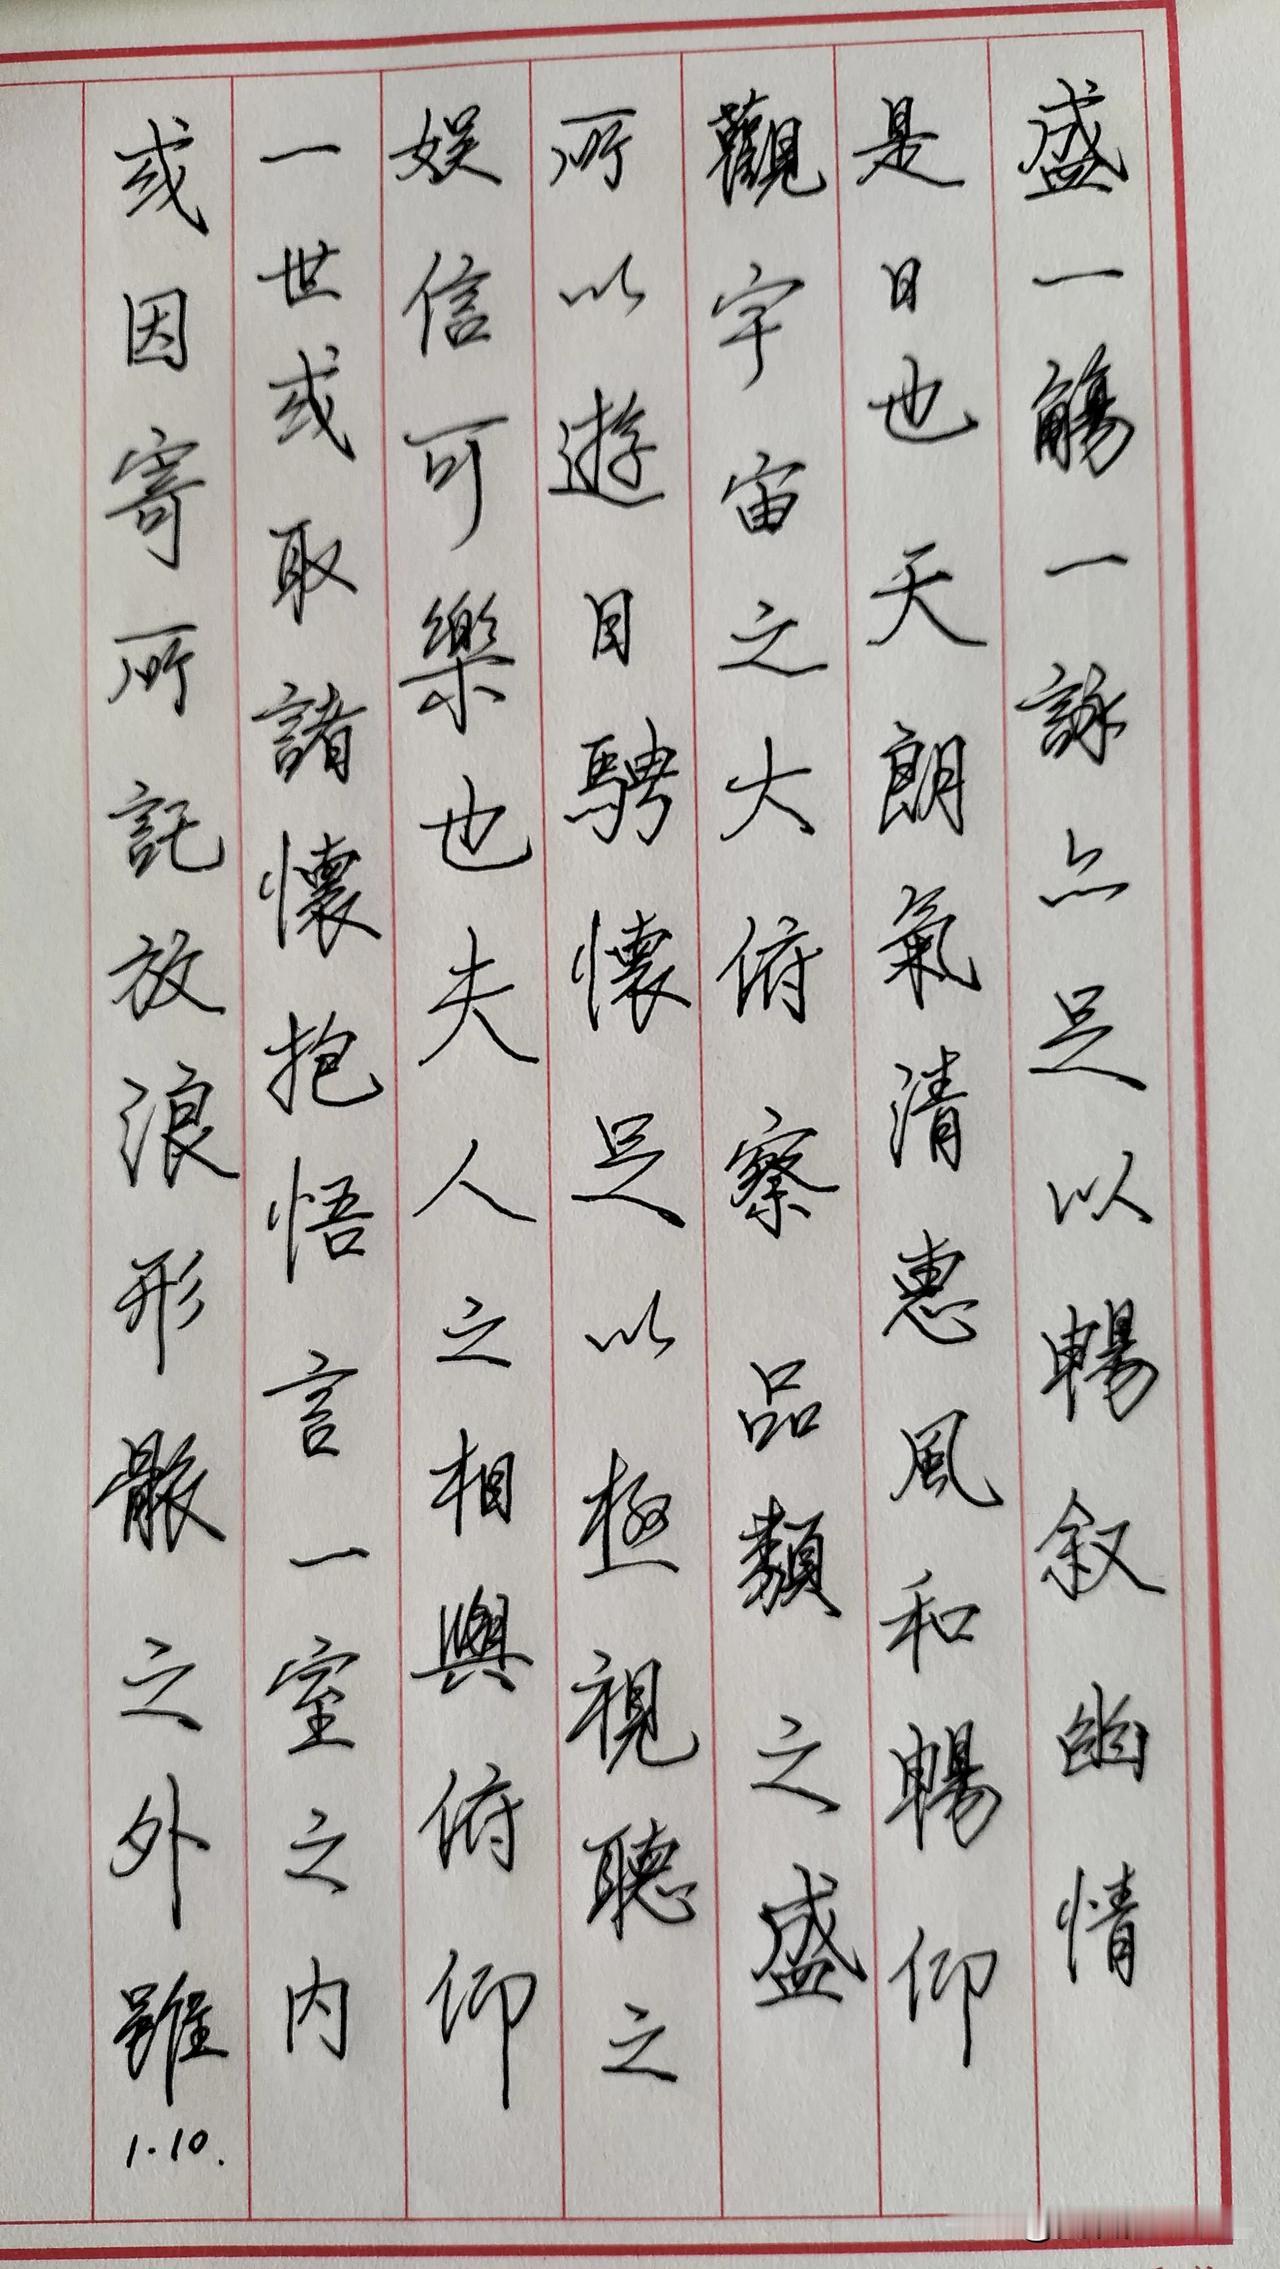 盛一觴一詠亦足以暢叙幽情
是日也天朗氣清惠風和暢仰
觀宇宙之大俯察品類之盛
所以遊目騁懷足以極視聽之
娱信可樂也夫人之相與俯仰
一世或取諸懷抱悟言一室之内
或因寄所託放浪形骸之外雖
1.10.